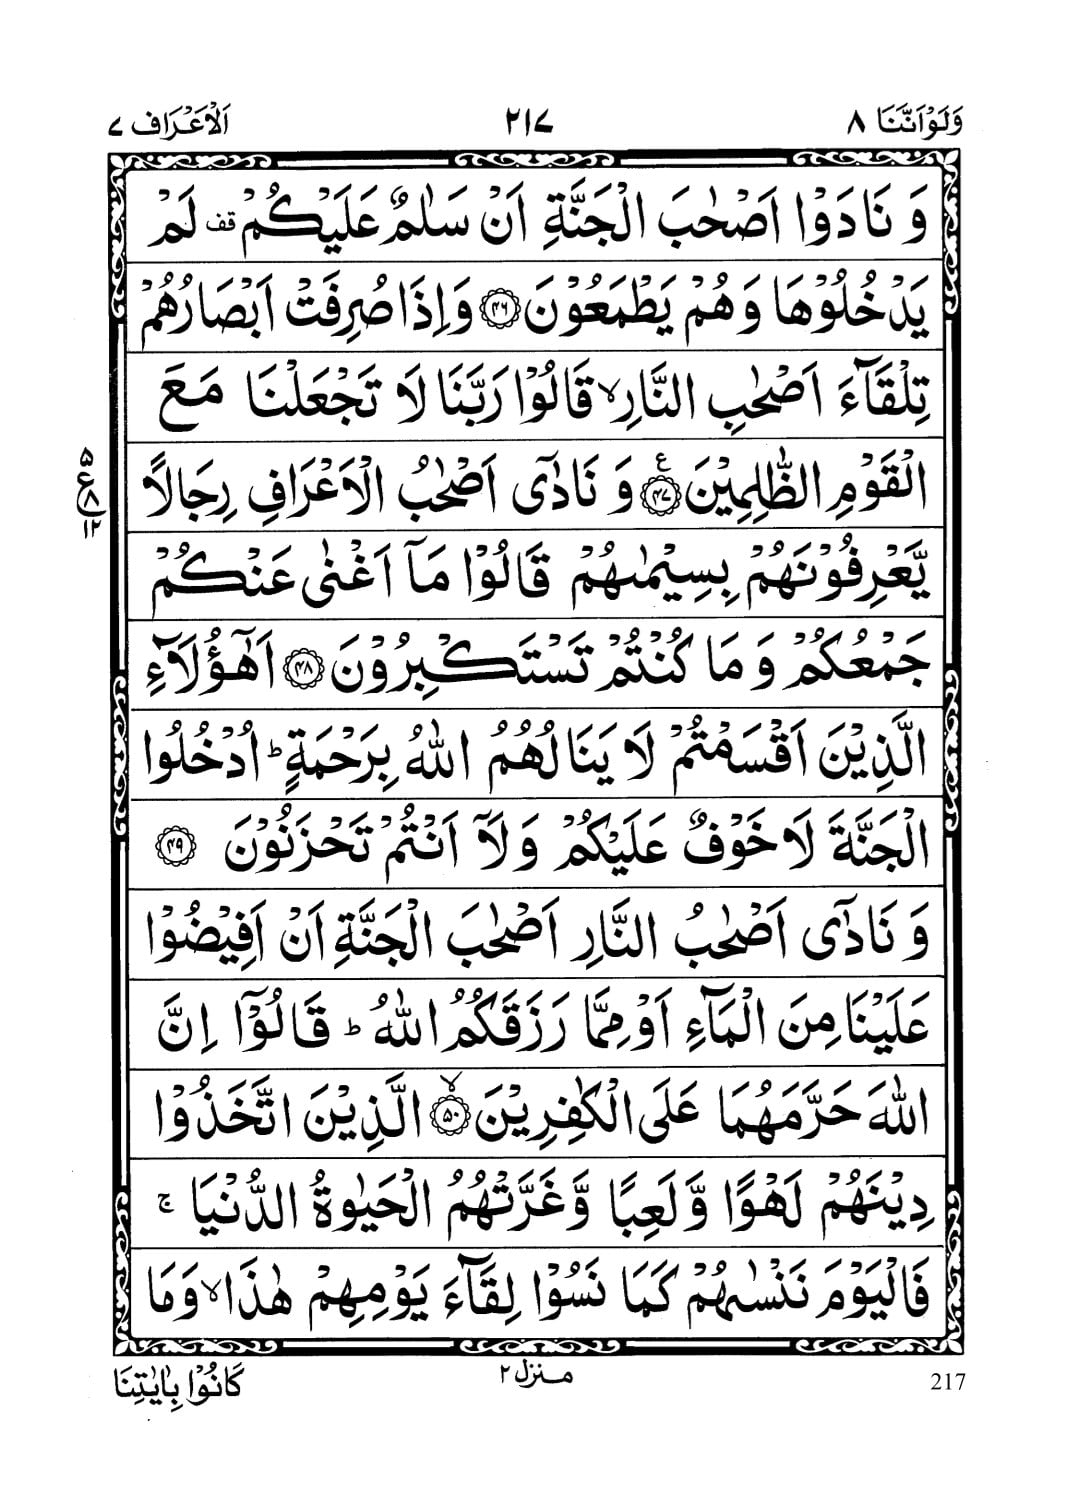 وَلَوْ اَنَّنَا ۸
۲۱۷
اَلْاَعْرَاف ۷
وَ نَادَوْا اَصْحٰبَ الْجَنَّةِ اَنْ سَلٰمٌ عَلَيْكُمْ قف لَمْ
يَدْخُلُوْهَا وَهُمْ يَطْمَعُوْنَ ﴿۴۶﴾ وَاِذَا صُرِفَتْ اَبْصَارُهُمْ
تِلْقَآءَ اَصْحٰبِ النَّارِ ۙ قَالُوْا رَبَّنَا لَا تَجْعَلْنَا مَعَ
الْقَوْمِ الظّٰلِمِيْنَ ﴿۴۷﴾ ع وَ نَادٰٓى اَصْحٰبُ الْاَعْرَافِ رِجَالًا
۵
ع ۸
۱۲
يَّعْرِفُوْنَهُمْ بِسِيْمٰىهُمْ قَالُوْا مَآ اَغْنٰى عَنْكُمْ
جَمْعُكُمْ وَ مَا كُنْتُمْ تَسْتَكْبِرُوْنَ ﴿۴۸﴾ اَهٰٓؤُلَآءِ
الَّذِيْنَ اَقْسَمْتُمْ لَا يَنَالُهُمُ اللّٰهُ بِرَحْمَةٍ ؕ اُدْخُلُوا
الْجَنَّةَ لَا خَوْفٌ عَلَيْكُمْ وَ لَآ اَنْتُمْ تَحْزَنُوْنَ ﴿۴۹﴾
وَ نَادٰٓى اَصْحٰبُ النَّارِ اَصْحٰبَ الْجَنَّةِ اَنْ اَفِيْضُوْا
عَلَيْنَا مِنَ الْمَآءِ اَوْ مِمَّا رَزَقَكُمُ اللّٰهُ ؕ قَالُوْٓا اِنَّ
اللّٰهَ حَرَّمَهُمَا عَلَى الْكٰفِرِيْنَ ﴿۵۰﴾ ۙ الَّذِيْنَ اتَّخَذُوْا
دِيْنَهُمْ لَهْوًا وَّ لَعِبًا وَّ غَرَّتْهُمُ الْحَيٰوةُ الدُّنْيَا ۚ
فَالْيَوْمَ نَنْسٰىهُمْ كَمَا نَسُوْا لِقَآءَ يَوْمِهِمْ هٰذَا ۙ وَ مَا
217
منزل ۲
كَانُوْا بِاٰيٰتِنَا